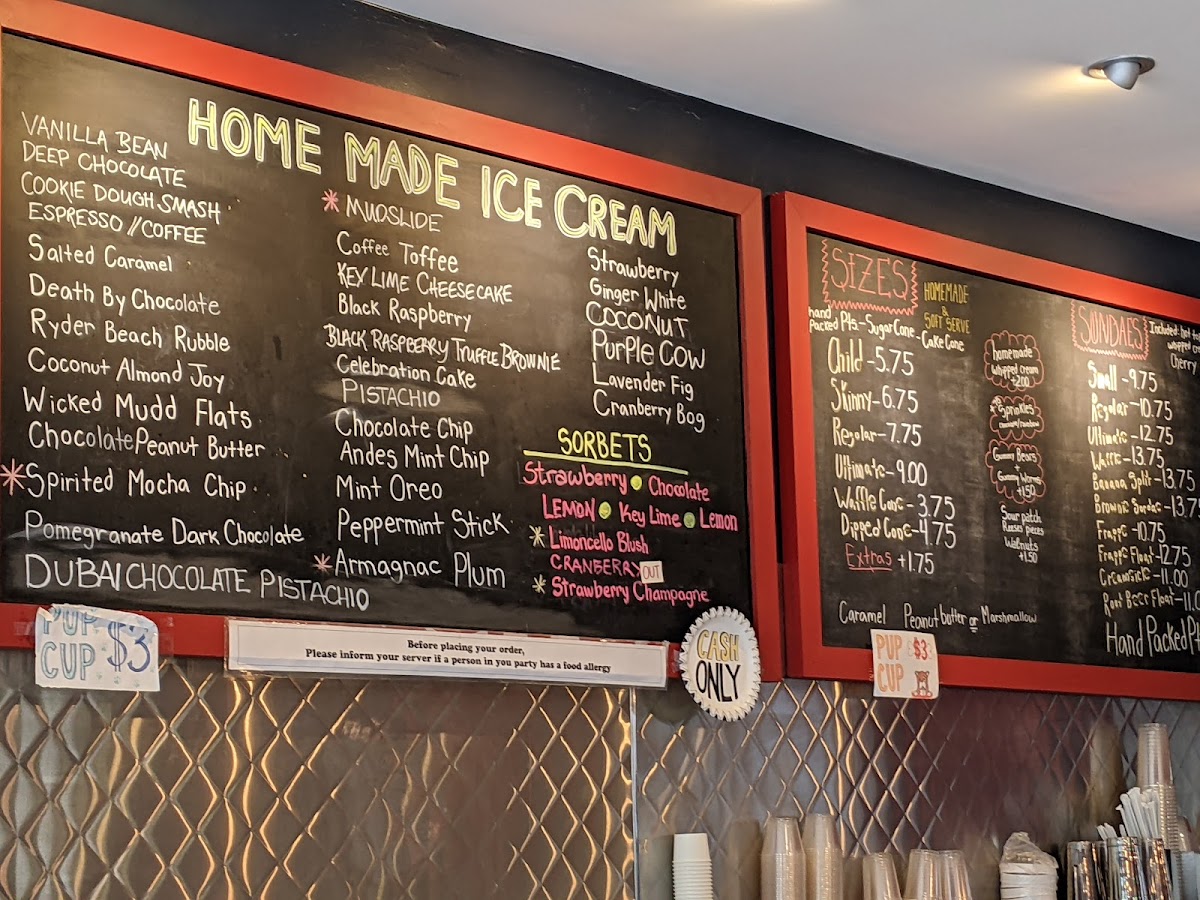 HOME MADE ICE CREAM
VANILLA BEAN
DEEP CHOCOLATE
COOKIE DOUGH SMASH
ESPRESSO // COFFEE
Salted Caramel
Death By Chocolate
Ryder Beach Rubble
Coconut Almond Joy
Wicked Mudd Flats
Chocolate Peanut Butter
* Spirited Mocha Chip
Pomegranate Dark Chocolate
DUBAI CHOCOLATE PISTACHIO
* MUDSLIDE
Coffee Toffee
KEY LIME CHEESECAKE
Black Raspberry
BLACK RASPBERRY TRUFFLE BROWNIE
Celebration Cake
PISTACHIO
Chocolate Chip
Andes Mint Chip
Mint Oreo
Peppermint Stick
* Armagnac Plum
Strawberry
Ginger White
COCONUT
PURPLE COW
Lavender Fig
Cranberry Bog
SORBETS
Strawberry • Chocolate
LEMON • Key Lime • Lemon
* Limoncello Blush
CRANBERRY OUT
* Strawberry Champagne
PUP CUP $3
Before placing your order,
Please inform your server if a person in you party has a food allergy
CASH
ONLY
SIZES
HOMEMADE
&
SOFT SERVE
hand
packed Pts - Sugar Cone - Cake Cone
Child - 5.75
Skinny - 6.75
Regular - 7.75
Ultimate - 9.00
Waffle Cone - 3.75
Dipped Cone - 4.75
Extras +1.75
Caramel Peanut butter or Marshmallow
homemade
whipped cream
+2.00
Sprinkles
Gummy Bears
+
Gummy Worms
+1.50
Sour patch
Reeses pieces
Walnuts
+1.50
SUNDAES
Included: hot
whipped
Cherry
Small - 9.75
Regular - 10.75
Ultimate - 12.75
- 13.75
Banana Split - 13.75
Brownie Sundae - 13.7
Frappe - 10.75
Frappe Float - 12.75
Creamsicle - 11.00
Root Beer Float - 11.0
Hand Packed
PUP $3
CUP